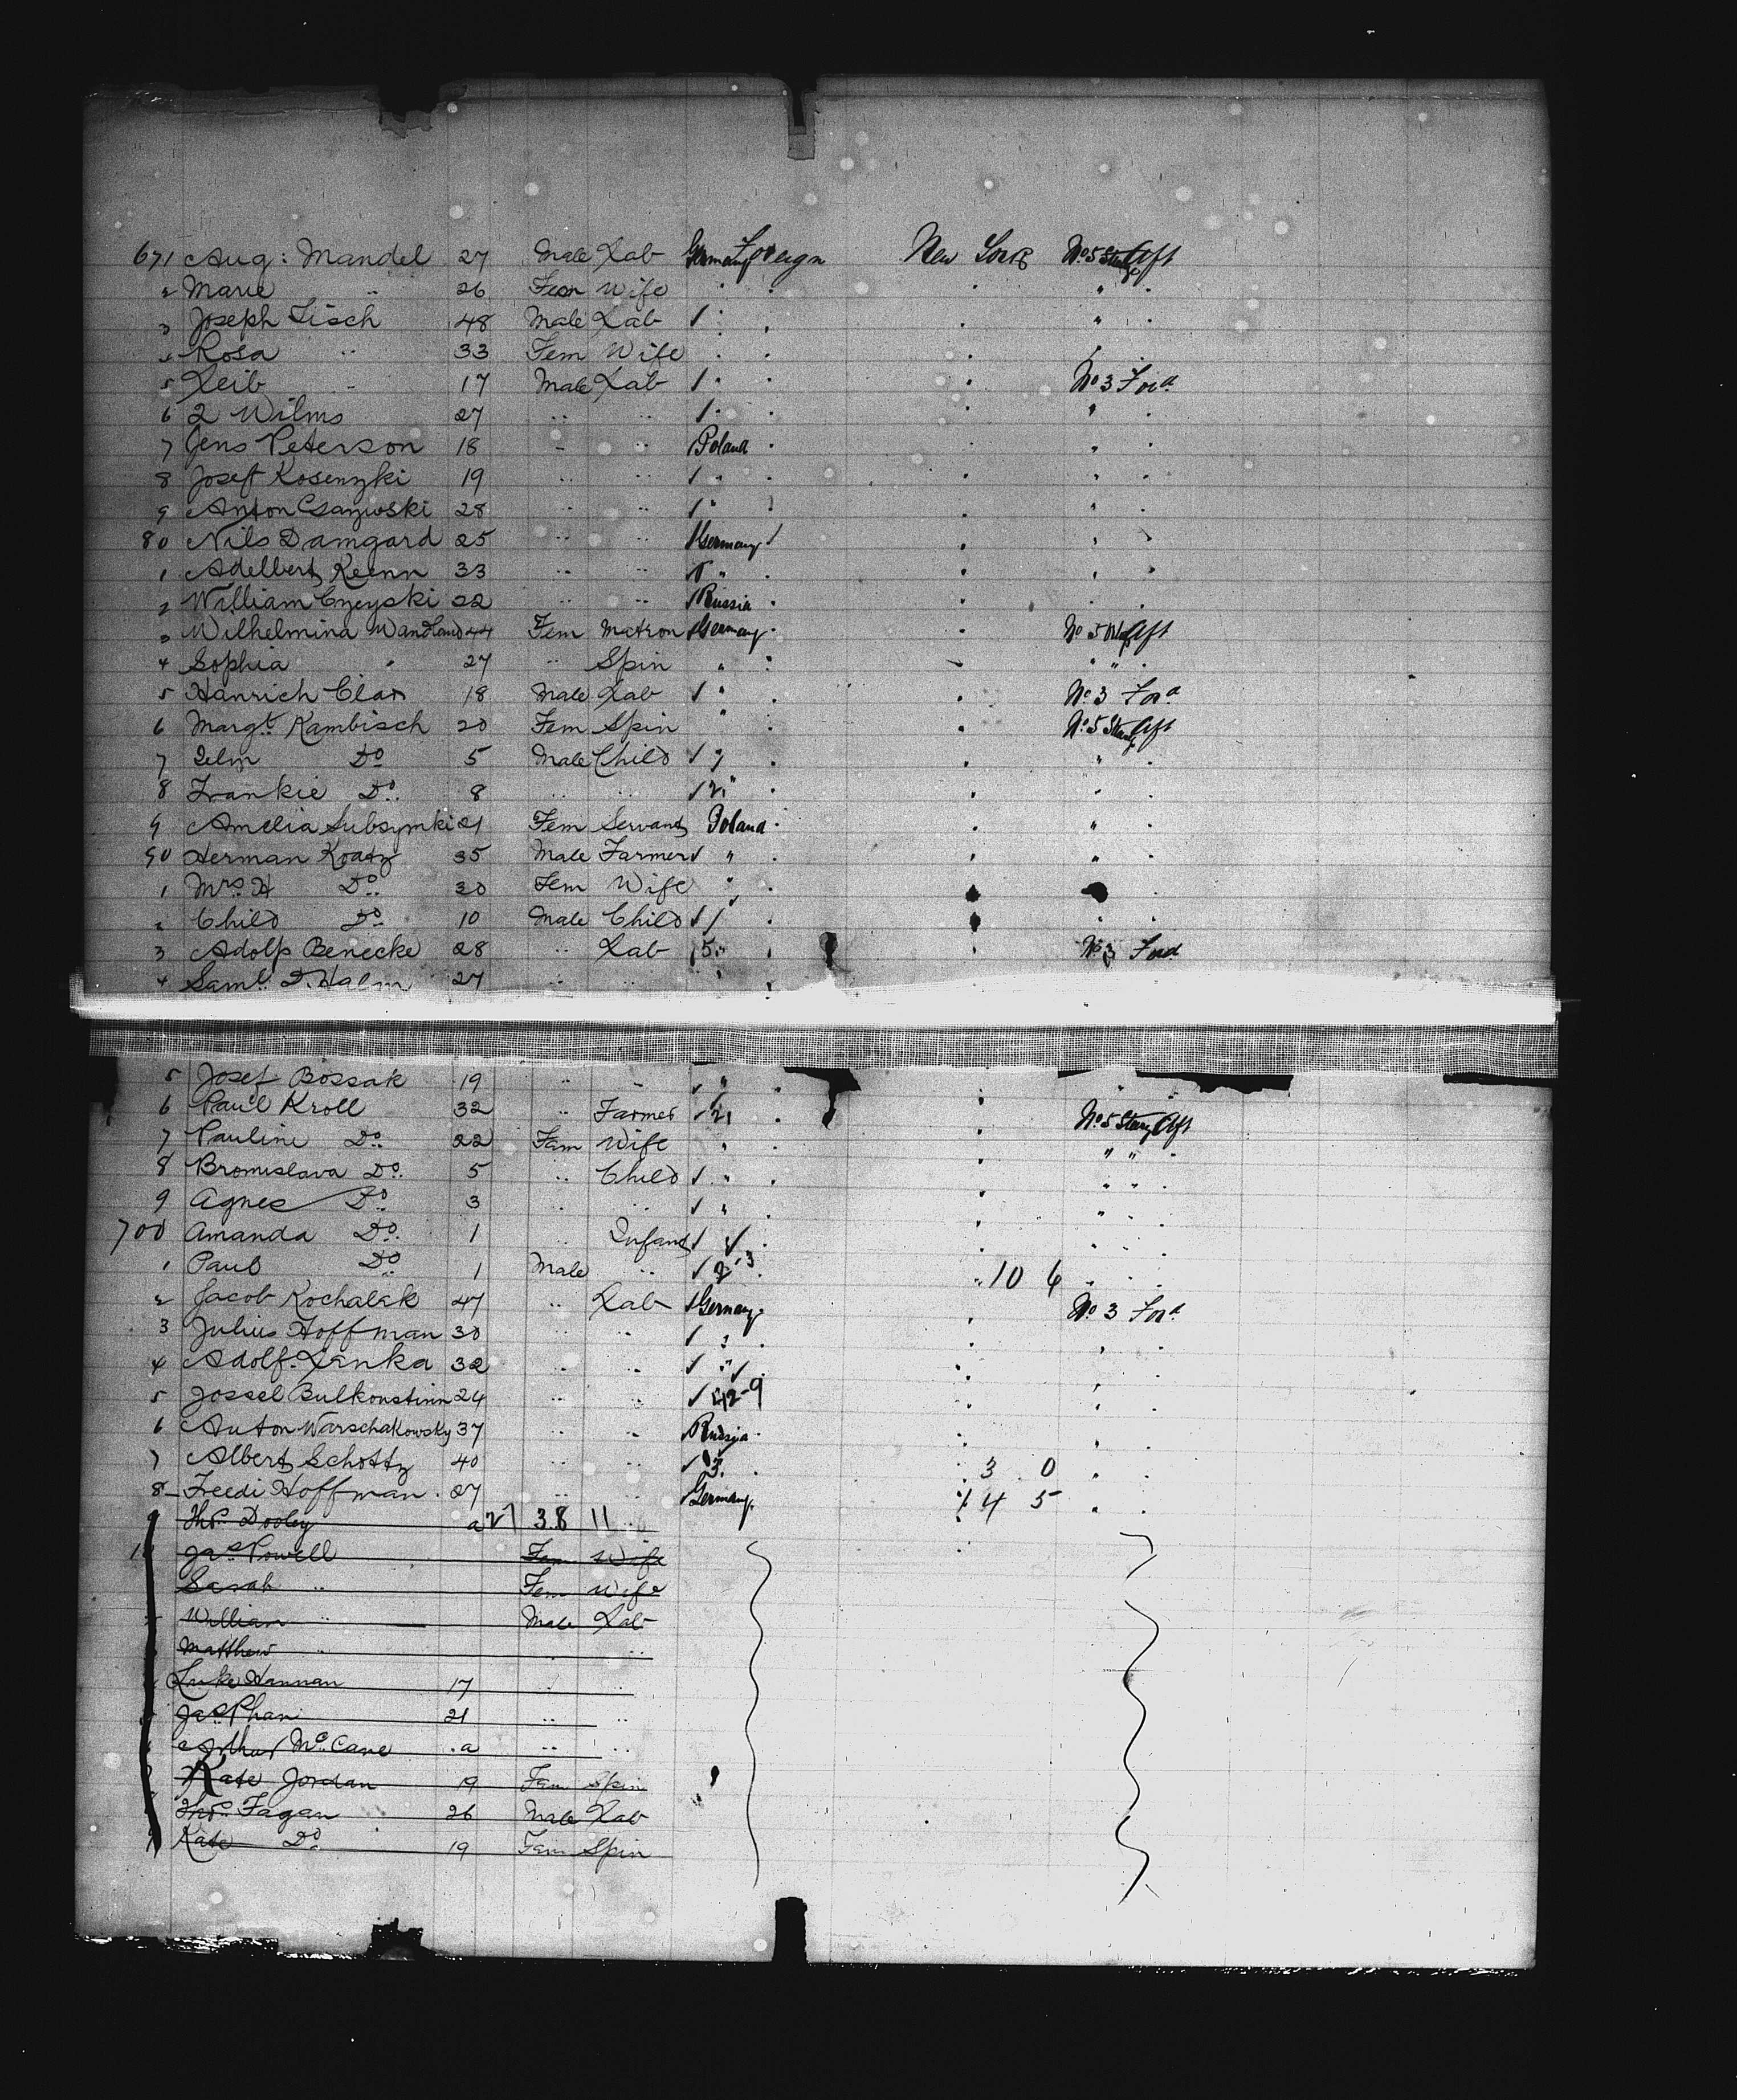 671 Aug: Mandel 27 Male Lab Germany Foreign New York No 5 Aft
2 Marie " 26 Fem Wife
3 Joseph Lisch 48 Male Lab
4 Rosa " 33 Fem Wife
5 Leib " 17 Male Lab No 3 For d
6 2 Wilms 27 " "
7 Jens Peterson 18 " " Poland
8 Josef Kosenzki 19 " "
9 Anton 28 " "
80 Nils Damgard 25 " " Germany
1 Adelbert Keenn 33 " "
2 William Czeyski 22 " " Russia
3 Wilhelmina Wandland 44 Fem Matron Germany No 5 Aft
4 Sophia " 27 " Spin
5 Hanrich Clan 18 Male Lab No 3 For d
6 Margt Kambisch 20 Fem Spin No 5 Aft
7 Do 5 Male Child
8 Frankie Do 8 " "
9 Amelia Subsymki 21 Fem Servant Poland
90 Herman Koatz 35 Male Farmer "
1 Mrs H Do 30 Fem Wife "
2 Child Do 10 Male Child
3 Adolp Benecke 28 " Lab 5 No 3 For d
4 Saml D. Halm 27 " "
5 Josef Bossak 19 " "
6 Paul Kroll 32 " Farmer 21 No 5 Aft
7 Pauline Do 22 Fem Wife
8 Bromislava Do 5 " Child
9 Agnes Do 3 " "
700 Amanda Do 1 " Infant
1 Paul Do 1 Male " 2 3 10 6
2 Jacob Kochalek 47 " Lab Germany No 3 For d
3 Julius Hoffman 30 " "
4 Adolf Lenka 32 " "
5 Jossel Bulkonstinn 24 " " 42-9
6 Anton Warschakowsky 37 " " Russia
7 Albert Schottz 40 " " 3 3 0
8 Freedi Hoffman 27 " " Germany 1 4 5
9 Thos Dooley a 27 38 11
10 Jas Powell Fem Wife
Sarah " Fem Wife
William " Male Lab
Matthew " " "
Luke Hannan 17 " "
Jas Phan 21 " "
Arthur McCane a " "
Kate Jordan 19 Fem Spin
Thos Fagan 26 Male Lab
Kate Do 19 Fem Spin